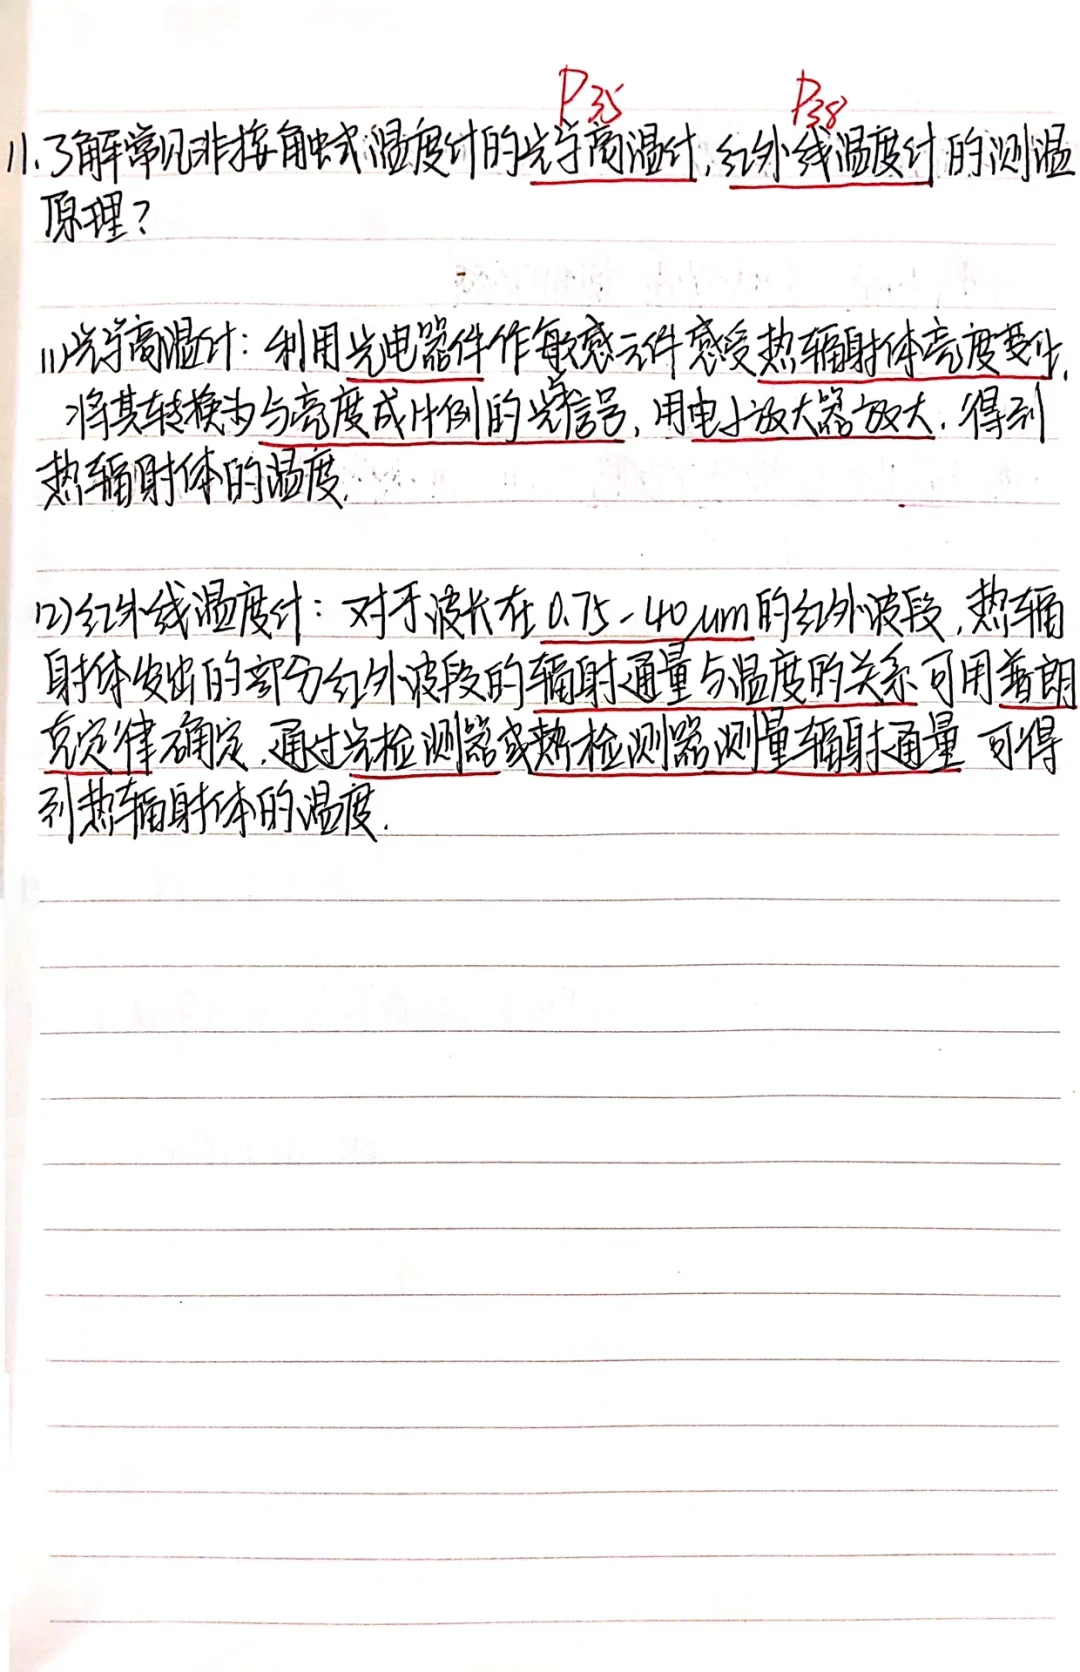 P35 P38
11.了解常见非接触式温度计的光学高温计,红外线温度计的测温
原理?
(1)光学高温计:利用光电器件作敏感元件感受热辐射体亮度变化,
将其转换为与亮度成比例的信号,用电子放大器放大.得到
热辐射体的温度.
(2)红外线温度计:对于波长在0.75-40μm的红外波段,热辐
射体发出的部分红外波段的辐射通量与温度的关系可用普朗
克定律确定.通过光检测器或热检测器测量辐射通量 可得
到热辐射体的温度.